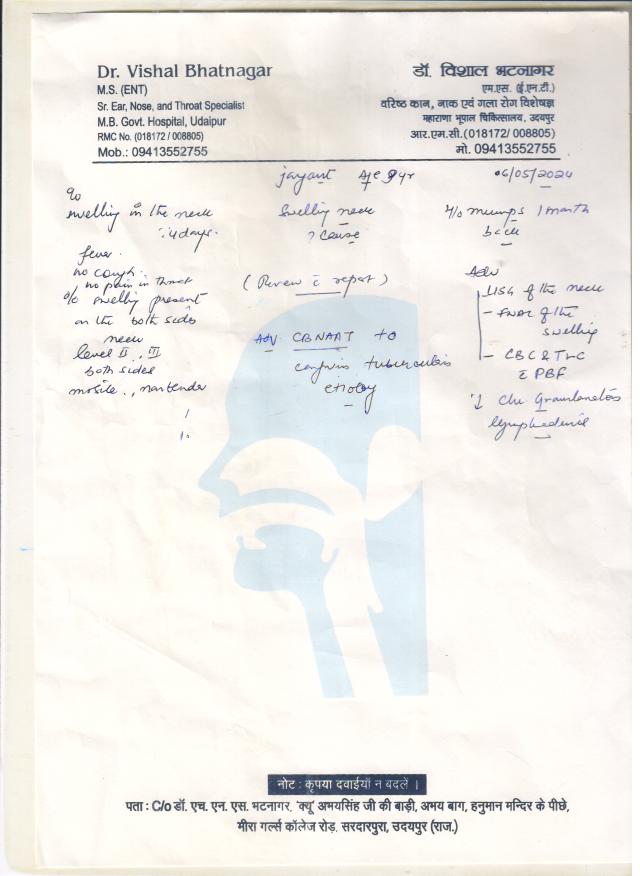 Dr. Vishal Bhatnagar
M.S. (ENT)
Sr. Ear, Nose, and Throat Specialist
M.B. Govt. Hospital, Udaipur
RMC No. (018172 / 008805)
Mob.: 09413552755
डॉ. विशाल भटनागर
एम.एस. (ई.एन.टी.)
वरिष्ठ कान, नाक एवं गला रोग विशेषज्ञ
महाराणा भूपाल चिकित्सालय, उदयपुर
आर.एम.सी.(018172/ 008805)
मो. 09413552755
jayant Age 9yr
06/05/2024
c/o
swelling in the neck
: 4days.
fever.
no cough.
no pain in throat
o/e swelling present
on the both sides
neck
level II, III
both sided
mobile., nontender
Swelling neck
? Cause
(Review c report)
Adv CBNAAT to
confirm tuberculosis
etiology
H/o mumps 1 month
back
Adv
USG of the neck
- FNAC of the
swelling
- CBC & TLC
c PBF
Granulomatous
lymphadenitis
नोट : कृपया दवाईयाँ न बदलें ।
पता : C/o डॉ. एच. एन. एस. भटनागर, 'क्यू' अभयसिंह जी की बाड़ी, अभय बाग, हनुमान मन्दिर के पीछे,
मीरा गर्ल्स कॉलेज रोड़, सरदारपुरा, उदयपुर (राज.)